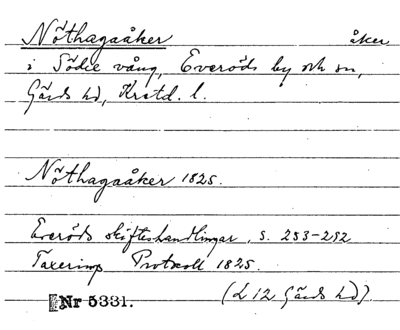 Nöthagaåker åker
i Södre vång, Everöds by och sn,
Gärds hd, Kristd. l.
Nöthagaåker 1825.
Everöds skifteshandlingar, s. 253-252
Taxerings Protokoll 1825.
(L 12 Gärds hd).
Nr 5331.